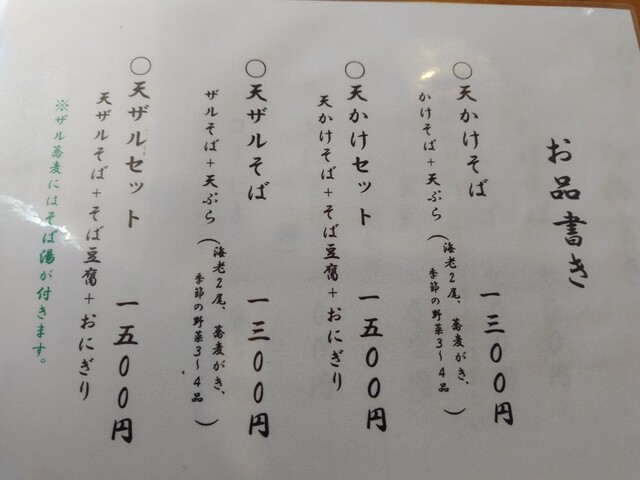 お品書き
○天かけそば 一三００円
かけそば+天ぷら(海老2尾、蕎麦がき、
季節の野菜3～4品)
○天かけセット 一五００円
天かけそば+そば豆腐+おにぎり
○天ザルそば 一三００円
ザルそば+天ぷら(海老2尾、蕎麦がき、
季節の野菜3～4品)
○天ザルセット 一五００円
天ザルそば+そば豆腐+おにぎり
※ザル蕎麦にはそば湯が付きます。